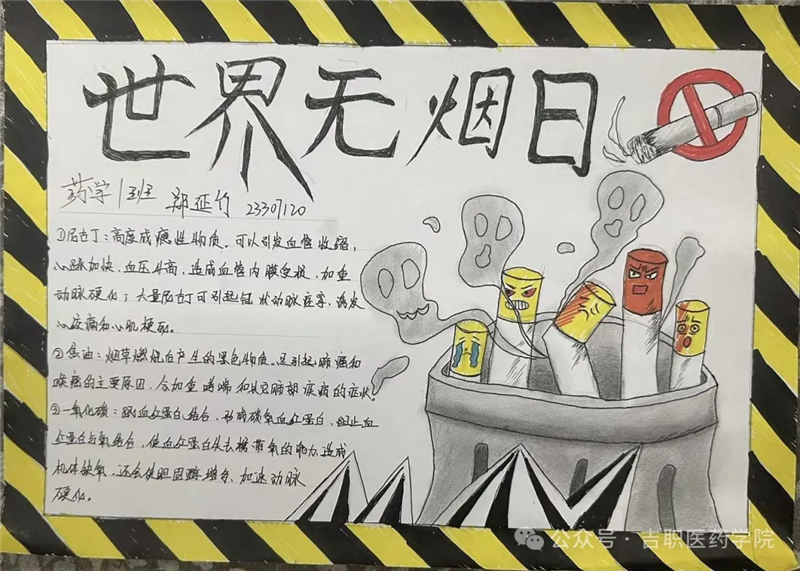 世界无烟日
药学1班 郑延竹 2330720
①尼古丁：高度成瘾性物质。可以引发血管收缩，
心跳加快，血压升高，造成血管内膜受损，加重
动脉硬化；大量尼古丁可引起冠状动脉痉挛，诱发
心绞痛和心肌梗死。
②焦油：烟草燃烧后产生的黑色物质。是引起肺癌和
喉癌的主要原因，会加重哮喘和其它肺部疾病的症状。
③一氧化碳：跟血红蛋白结合，形成碳氧血红蛋白，阻止血
红蛋白与氧结合，使血红蛋白失去携带氧的能力，造成
机体缺氧，还会使胆固醇增多，加速动脉
硬化。
公众号·吉职医药学院